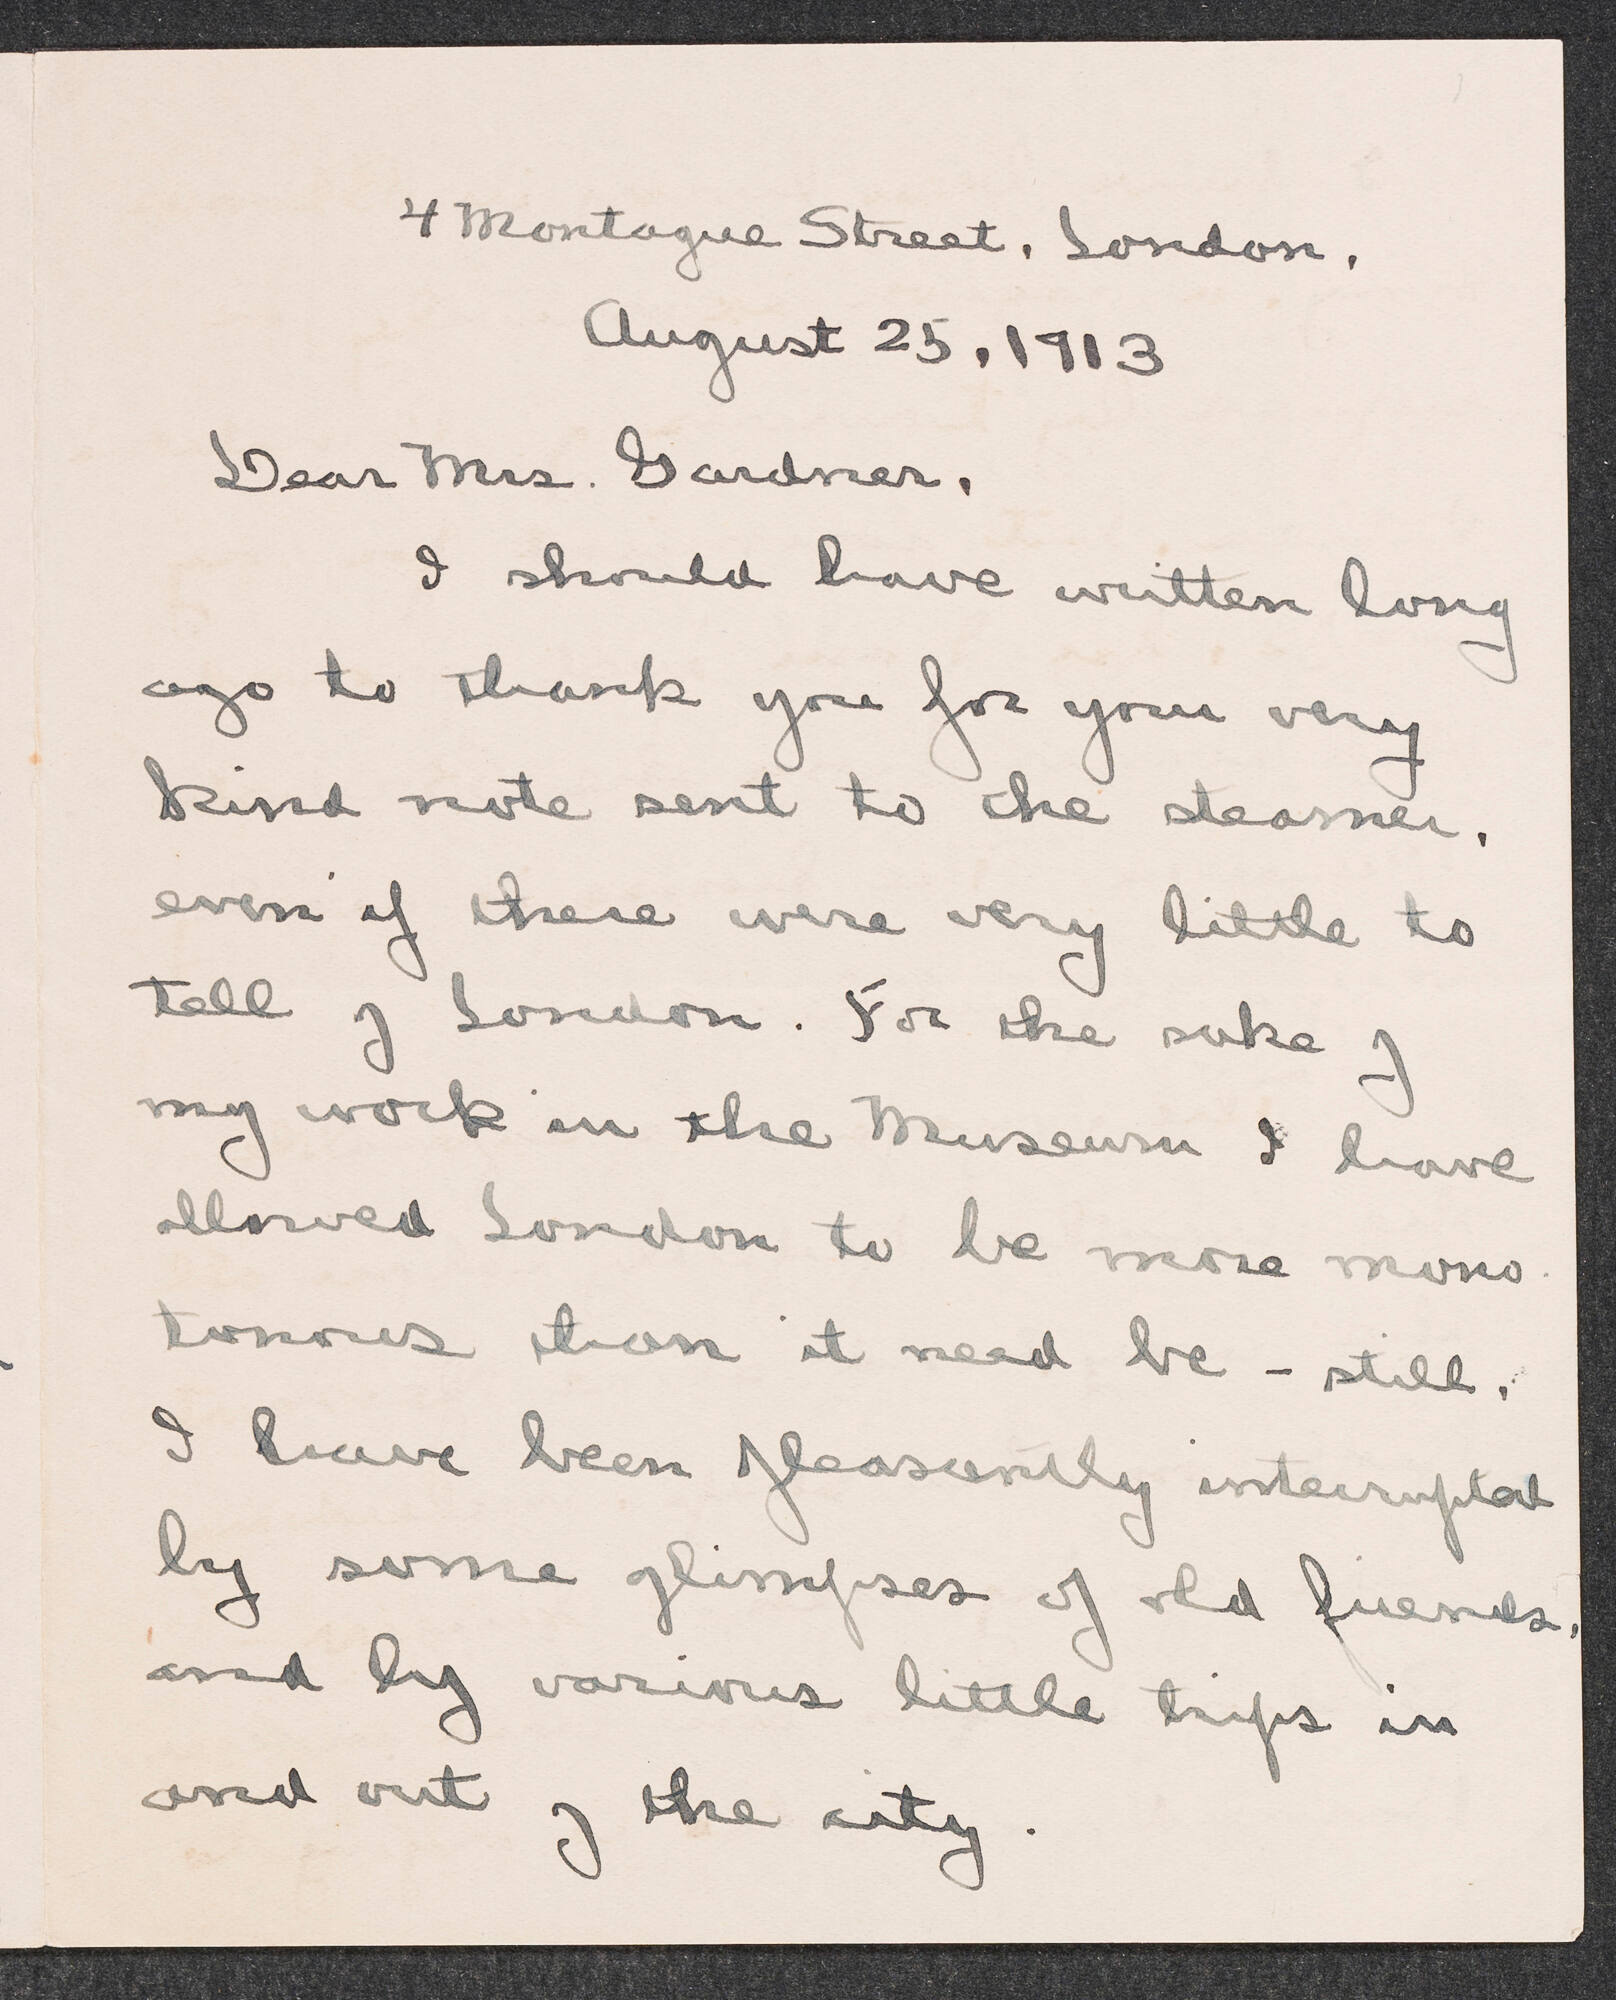 4 Montague Street, London,
August 25, 1913
Dear Mrs. Gardner,
I should have written long
ago to thank you for your very
kind note sent to the steamer,
even if there were very little to
tell of London. For the sake of
my work in the Museum I have
allowed London to be more mono-
tonous than it need be - still,
I have been pleasantly interrupted
by some glimpses of old friends,
and by various little trips in
and out of the city.